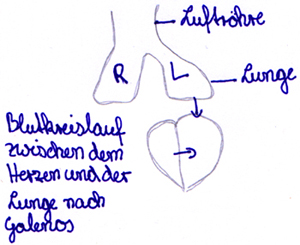 Luftröhre
R
L
Lunge
Blutkreislauf
zwischen dem
Herzen und der
Lunge nach
Galenos